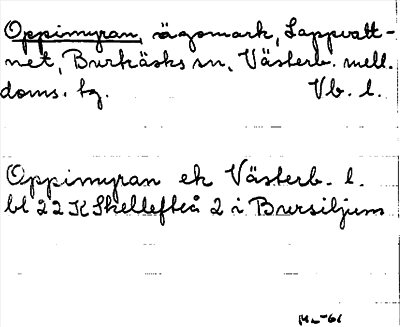 Oppimyran, ägomark, Lappvatt-
net, Burträsks sn, Västerb. mell.
doms. tg. Vb. l.
Oppimyran ek Västerb. l.
bl 22 K Skellefteå 2 i Bursiljum